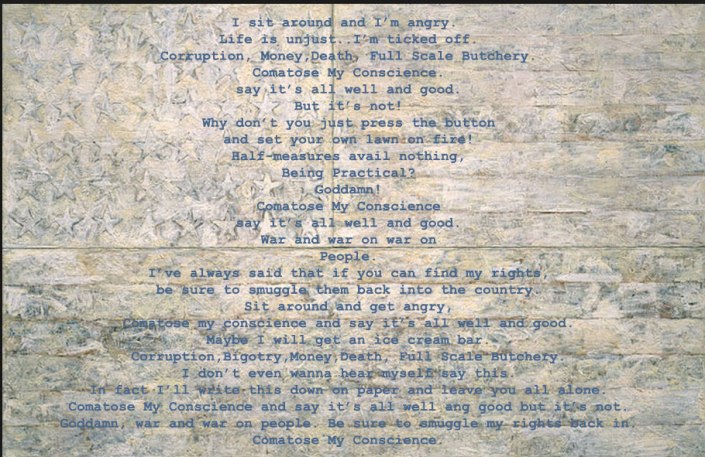 I sit around and I'm angry.
Life is unjust..I'm ticked off.
Corruption, Money,Death, Full Scale Butchery.
Comatose My Conscience.
say it's all well and good.
But it's not!
Why don't you just press the button
and set your own lawn on fire!
Half-measures avail nothing,
Being Practical?
Goddamn!
Comatose My Conscience
say it's all well and good.
War and war on war on
People.
I've always said that if you can find my rights,
be sure to smuggle them back into the country.
Sit around and get angry,
Comatose my conscience and say it's all well and good.
Maybe I will get an ice cream bar.
Corruption,Bigotry,Money,Death, Full Scale Butchery.
I don't even wanna hear myself say this.
In fact I'll write this down on paper and leave you all alone.
Comatose My Conscience and say it's all well ang good but it's not.
Goddamn, war and war on people. Be sure to smuggle my rights back in.
Comatose My Conscience.